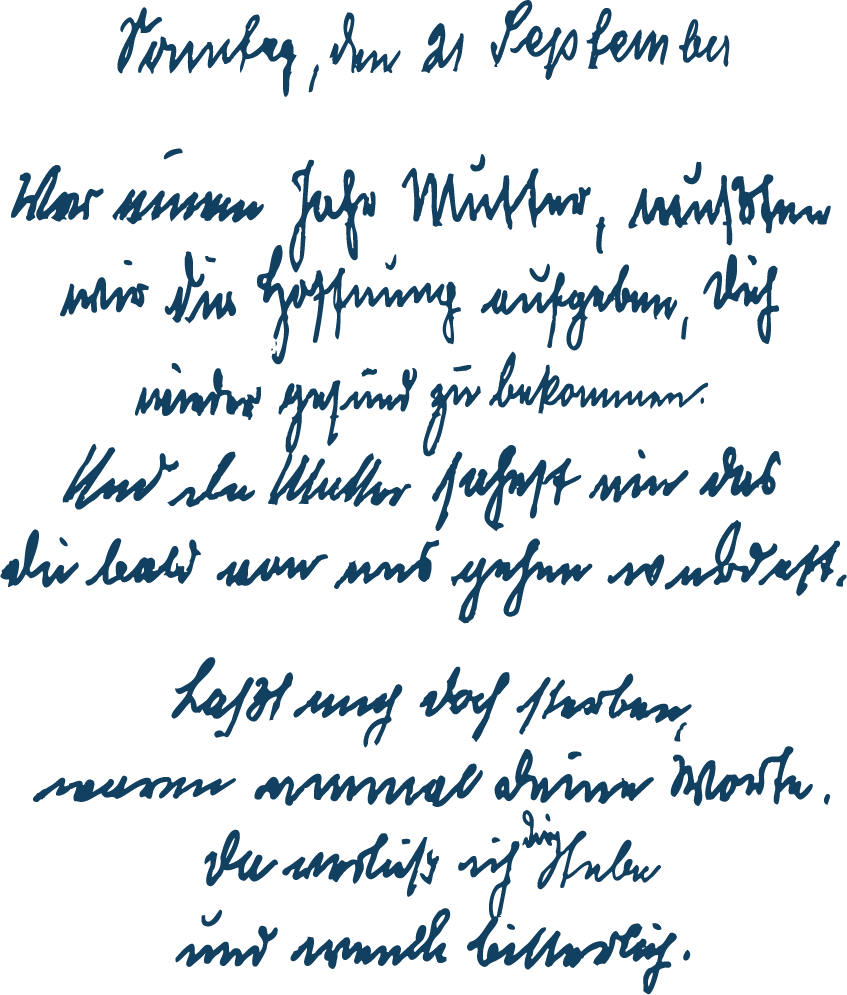 Sonntag, den 21 September
Vor einem Jahr Mutter, mußten
wir die Hoffnung aufgeben, Dich
wieder gesund zu bekommen.
Und du Mutter sahest ein das
du bald von uns gehen würdest.
Laßt mich doch sterben,
waren einmal deine Worte.
Da verließ ich die Stube
und weinte bitterlich.